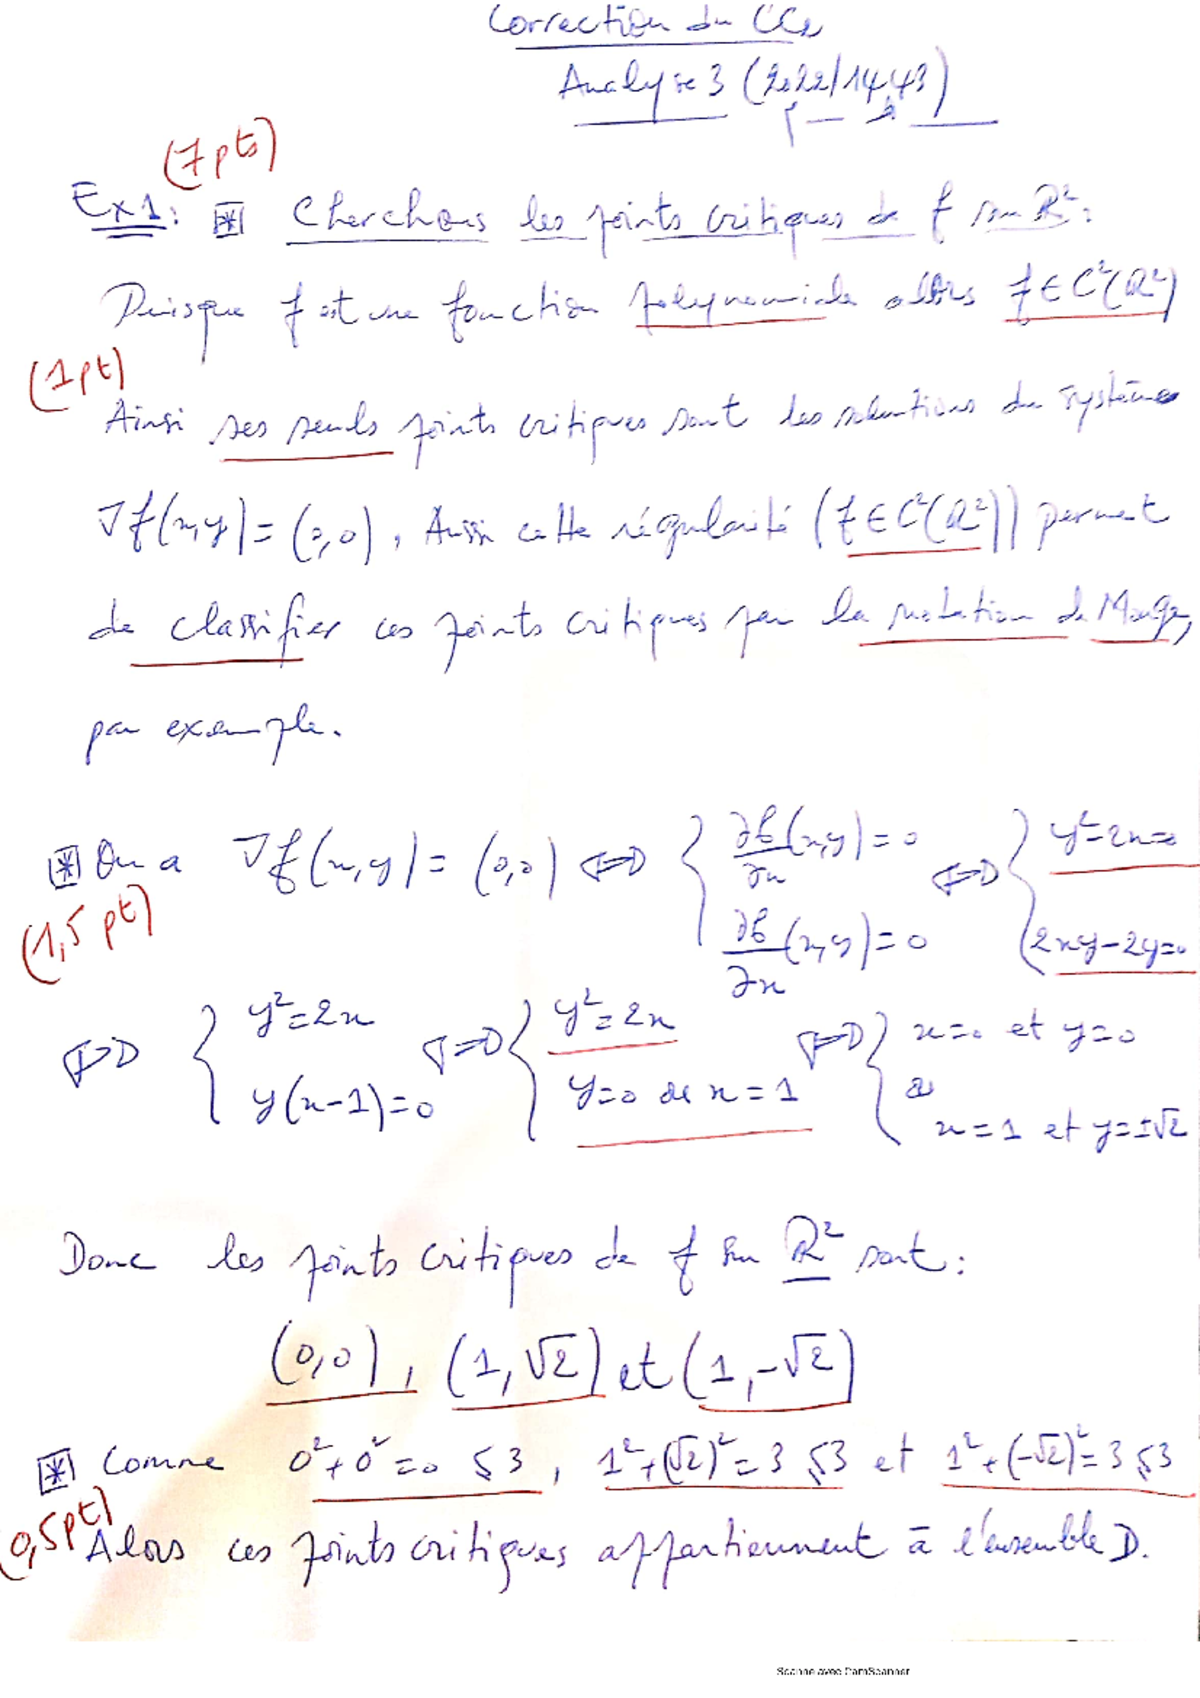 Correction du CC2
Analyse 3 (2022/1443)
(7pts)
Ex1: * Cherchons les points critiques de f sur ℝ²:
Puisque f est une fonction polynomiale alors f ∈ C²(ℝ²)
(1pt)
Ainsi ses seuls points critiques sont les solutions du système
∇f(x,y) = (0,0), Aussi cette régularité (f ∈ C²(ℝ²)) permet
de classifier ces points critiques par la notation de Monge,
par exemple.
* On a ∇f(x,y) = (0,0) ⇔ { ∂f/∂x (x,y) = 0 ⇔ { y²-2x=0
(1,5 pt) ∂f/∂x (x,y) = 0 2xy-2y=0
⇔ { y²=2x ⇔ { y²=2x ⇔ { x=0 et y=0
y(x-1)=0 y=0 ou x=1 ou
x=1 et y=±√2
Donc les points critiques de f sur ℝ² sont:
(0,0), (1,√2) et (1,-√2)
* Comme 0²+0²=0 ≤3, 1²+(√2)²=3 ≤3 et 1²+(-√2)²=3 ≤3
(0,5pt) Alors ces points critiques appartiennent à l'ensemble D.
Scanné avec CamScanner